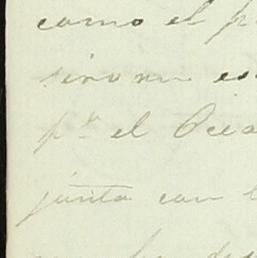 como el p
sino en es
p.ª el Ocea
junta con l